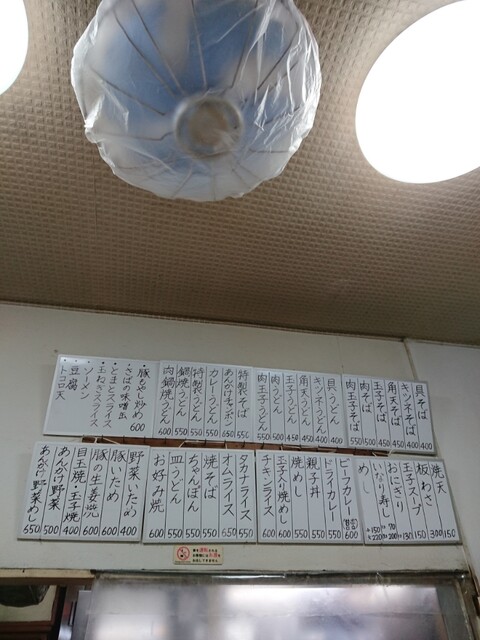 具そば 400
キツネそば 400
角天そば 450
玉子そば 450
肉そば 500
肉玉子そば 550
具うどん 400
キツネうどん 400
角天うどん 450
玉子うどん 450
肉うどん 500
肉玉子うどん 550
特製そば 550
あんかけそば 650
カレーうどん 550
特製うどん 550
鍋焼うどん 550
肉鍋焼うどん 600
豚もやし炒め 600
さばの味噌出
とまとスライス
玉ねぎスライス
ソーメン
豆腐
トコロ天
焼天 150
板わさ 300
玉子スープ 150
おにぎり
いなり寿し
めし
ビーフカレー 600
ドライカレー 550
親子丼 550
焼めし 500
玉子入り焼めし 600
チキンライス 600
タカナライス 550
オムライス 650
焼そば 550
ちゃんぽん 550
皿うどん 550
お好み焼 600
野菜いため 400
豚いため 600
豚の生姜焼 600
目玉焼・玉子焼 400
あんかけ野菜 500
あんかけ野菜めし 650